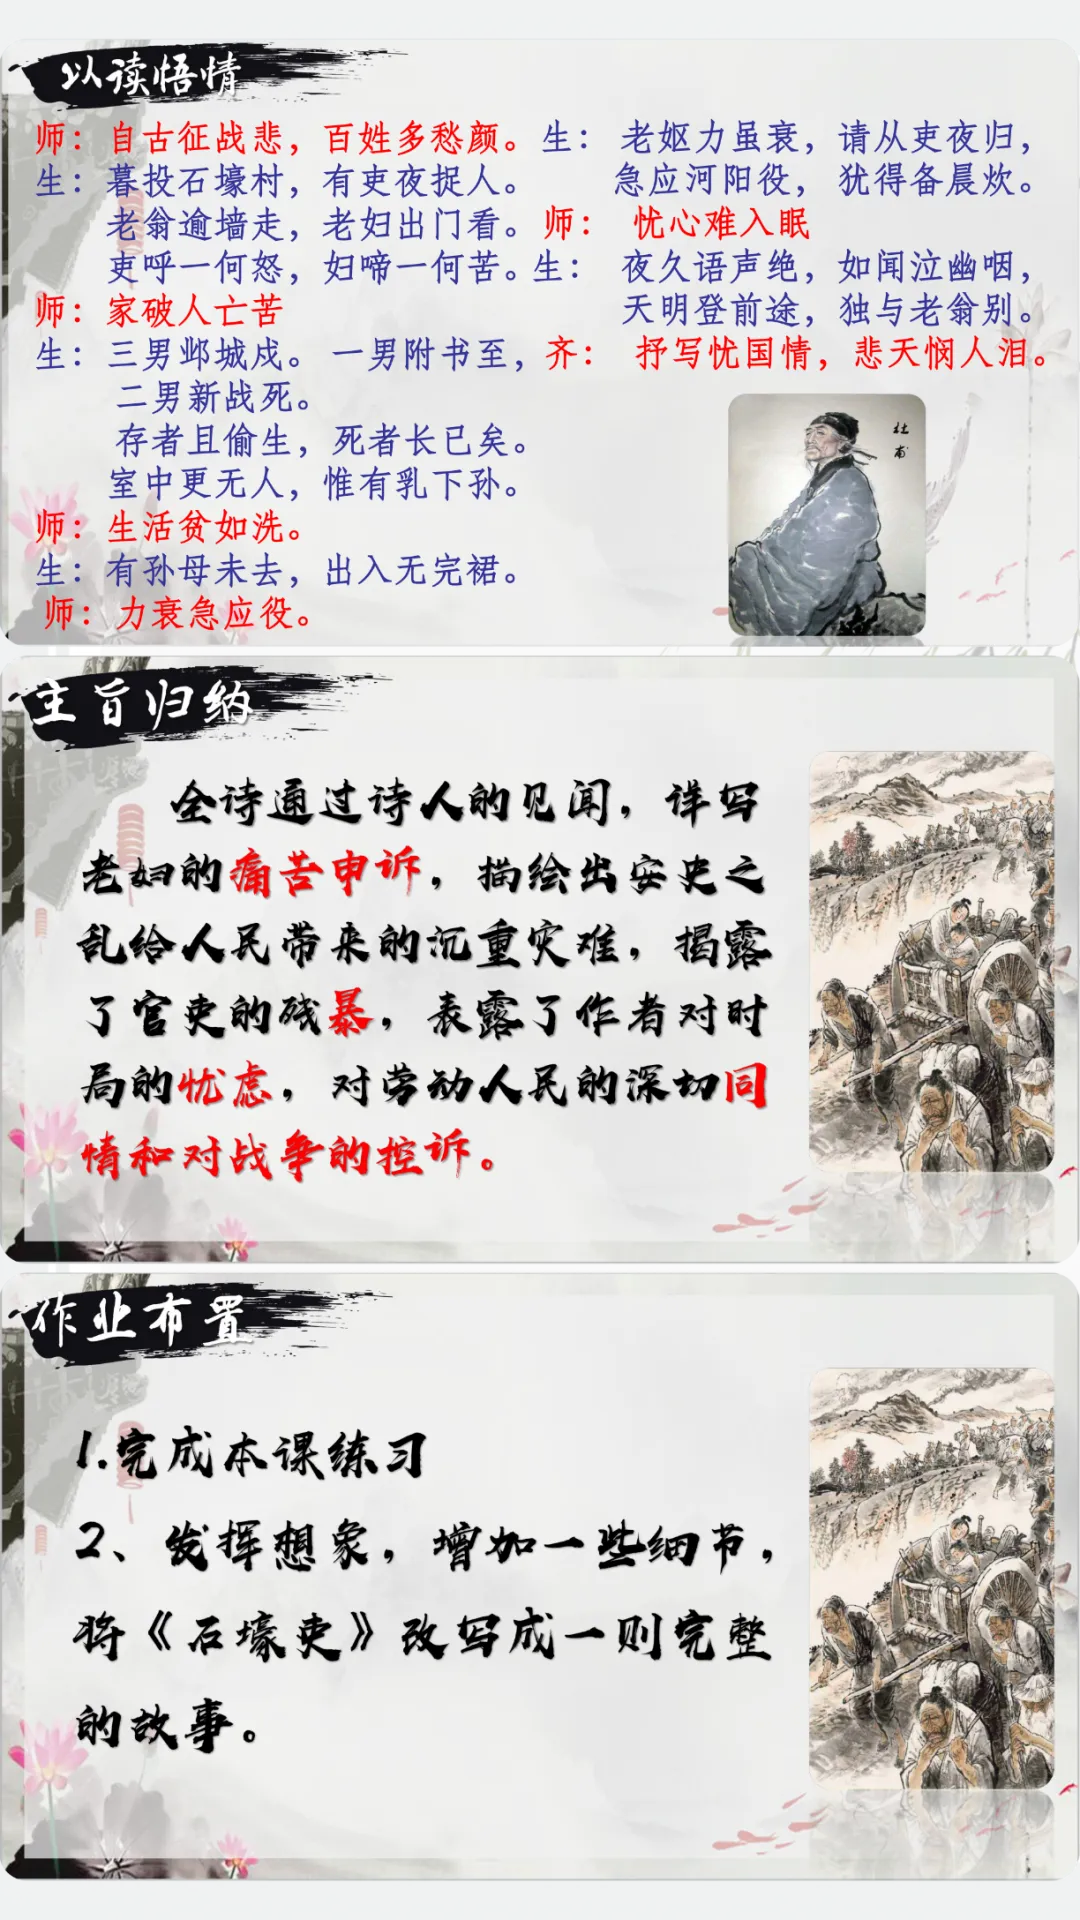 以读悟情
师：自古征战悲，百姓多愁颜。
生：暮投石壕村，有吏夜捉人。
老翁逾墙走，老妇出门看。
吏呼一何怒，妇啼一何苦。
师：家破人亡苦
生：三男邺城戍。 一男附书至，
二男新战死。
存者且偷生，死者长已矣。
室中更无人，惟有乳下孙。
师：生活贫如洗。
生：有孙母未去，出入无完裙。
师：力衰急应役。
生： 老妪力虽衰，请从吏夜归，
急应河阳役， 犹得备晨炊。
师： 忧心难入眠
生： 夜久语声绝，如闻泣幽咽，
天明登前途，独与老翁别。
齐： 抒写忧国情，悲天悯人泪。
杜
甫
主旨归纳
全诗通过诗人的见闻，详写
老妇的痛苦申诉，描绘出安史之
乱给人民带来的沉重灾难，揭露
了官吏的残暴，表露了作者对时
局的忧虑，对劳动人民的深切同
情和对战争的控诉。
作业布置
1.完成本课练习
2、发挥想象，增加一些细节，
将《石壕吏》改写成一则完整
的故事。